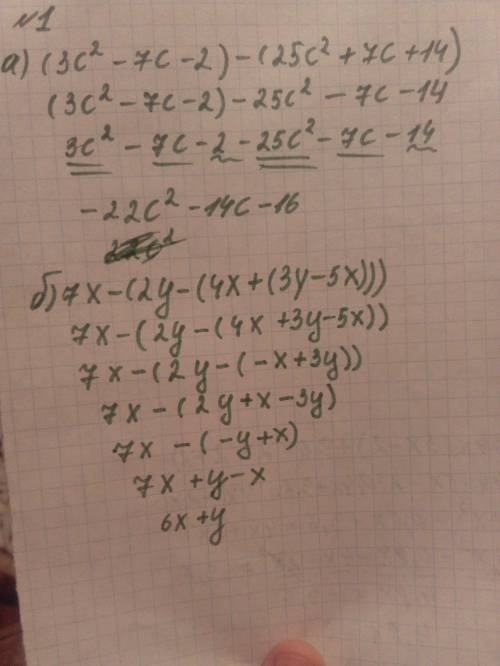 №1
а) (3c² - 7c - 2) - (25c² + 7c + 14)
(3c² - 7c - 2) - 25c² - 7c - 14
3c² - 7c - 2 - 25c² - 7c - 14
- 22c² - 14c - 16
22c²
б) 7x - (2y - (4x + (3y - 5x)))
7x - (2y - (4x + 3y - 5x))
7x - (2y - (-x + 3y))
7x - (2y + x - 3y)
7x - (-y + x)
7x + y - x
6x + y